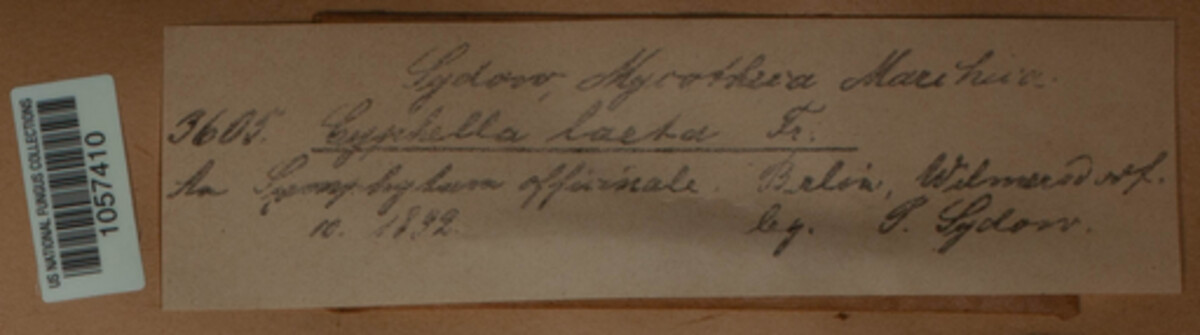 US NATIONAL FUNGUS COLLECTIONS
1057410
Sydow, Mycotheca Marchica.
3605. Cyphella laeta Fr.
An Symphytum officinale. Berlin, Wilmersdorf.
10. 1892. leg. P. Sydow.